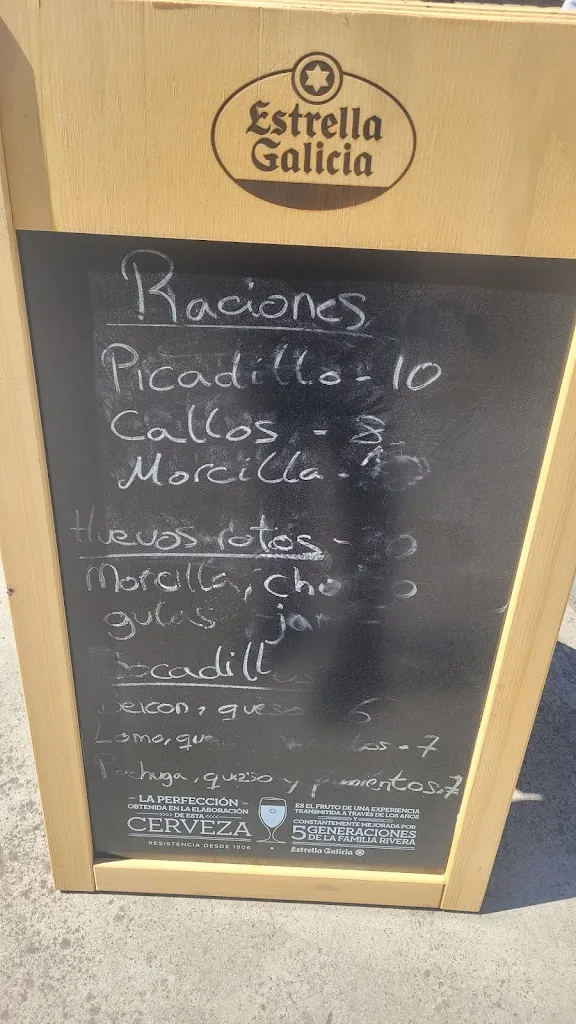 Estrella
Galicia
Raciones
Picadillo - 10
Callos - 8
Morcilla -
Huevos rotos -
Morcilla,
gulas
Bocadill
Beicon, queso 6
Lomo, - 7
Pechuga, queso y pimientos. 7
- LA PERFECCIÓN -
OBTENIDA EN LA ELABORACIÓN
DE ESTA
CERVEZA
RESISTENCIA DESDE 1906
ES EL FRUTO DE UNA EXPERIENCIA
TRANSMITIDA A TRAVÉS DE LOS AÑOS
Y
CONSTANTEMENTE MEJORADA POR
5 GENERACIONES
DE LA FAMILIA RIVERA
Estrella Galicia